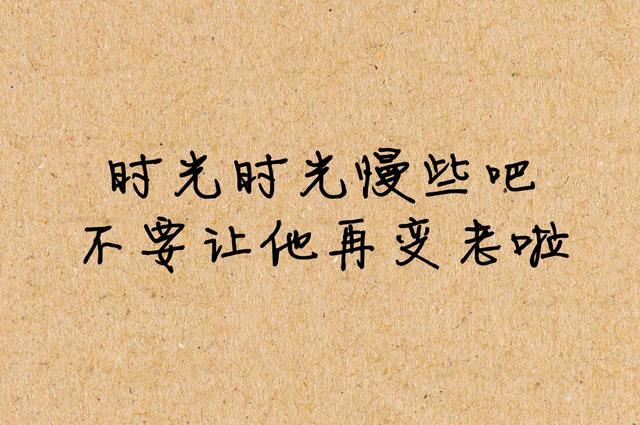 时光时光慢些吧
不要让他再变老啦